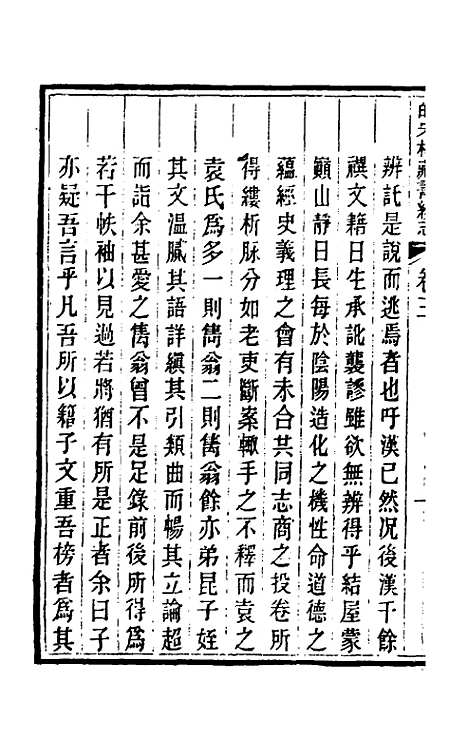 辨託是說而逃焉者也吁漢已然況後漢千餘
禩文籍日生承訛襲謬雖欲無辨得乎結屋蒙
顚山靜日長每於陰陽造化之機性命道德之
蘊經史義理之會有未合共同志商之投卷所
得縷析脉分如老吏斷案輙手之不釋而袁之
袁氏爲多一則雋翁二則雋翁餘亦弟昆子姪
其文温膩其語詳縝其引類曲而暢其立論超
而詣余甚愛之雋翁曾不是足錄前後所得爲
若干帙袖以見過若將猶有所是正者余曰子
亦疑吾言乎凡吾所以籍子文重吾榜者爲其